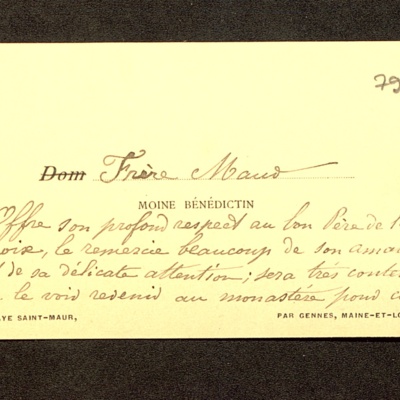 79
Dom Frère Maur
MOINE BÉNÉDICTIN
Offre son profond respect au bon Père de l
oix, le remercie beaucoup de son ama
de sa délicate attention; sera très conte
le voir revenir au monastère pour
YE SAINT-MAUR, PAR GENNES, MAINE-ET-LO